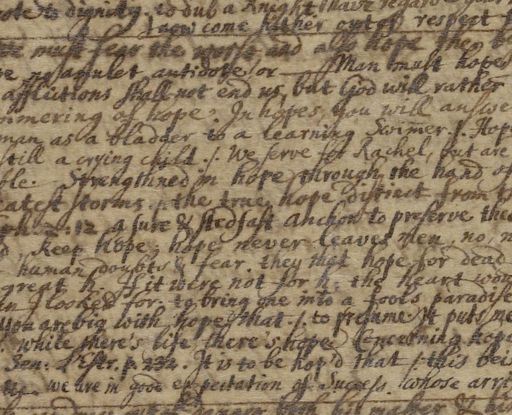 note to dignity, to dub a Knight. I have regard
I now come hither out of respect
we must fear the worse and also hope the be
no amulet antidote, or — Man must hope
afflictions shall not end us, but God will rather
immering of hope. In hopes, you will answe
man as a bladder to a learning Swimer. /. Hop
still a crying child. /. We serve for Rachel, but are
ble. Strengthned in hope through the hand of
eatest storms. /. the true hope distinct from
12. a sure & stedfast Anchor to preserve the
Keep hope; hope never leaves men, no, n
human doubts & fear. they that hope for dead
great h. If it were not for h. the heart wou
an I looked for. to bring one into a fools paradise
You are big with hope that /. to presume it puts me
while there's life there's hope. Concerning hope
Sen. L'Estr. p. 232. It is to be hop'd that /. this bei
we are in good expectation of Sucess. whose arri